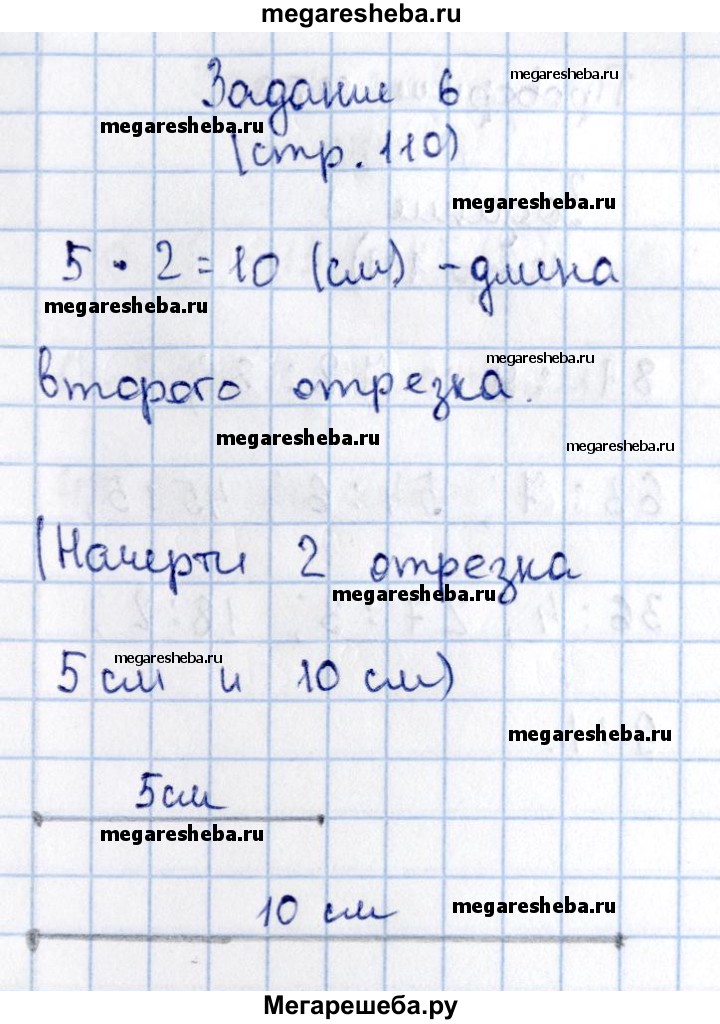 megaresheba.ru
Задание 6
megaresheba.ru
megaresheba.ru
(стр. 110)
megaresheba.ru
5 · 2 = 10 (см) - длина
megaresheba.ru
megaresheba.ru
второго отрезка.
megaresheba.ru
megaresheba.ru
(Начерти 2 отрезка
megaresheba.ru
megaresheba.ru
5 см и 10 см)
megaresheba.ru
5 см
megaresheba.ru
10 см
megaresheba.ru
Мегарешеба.ру